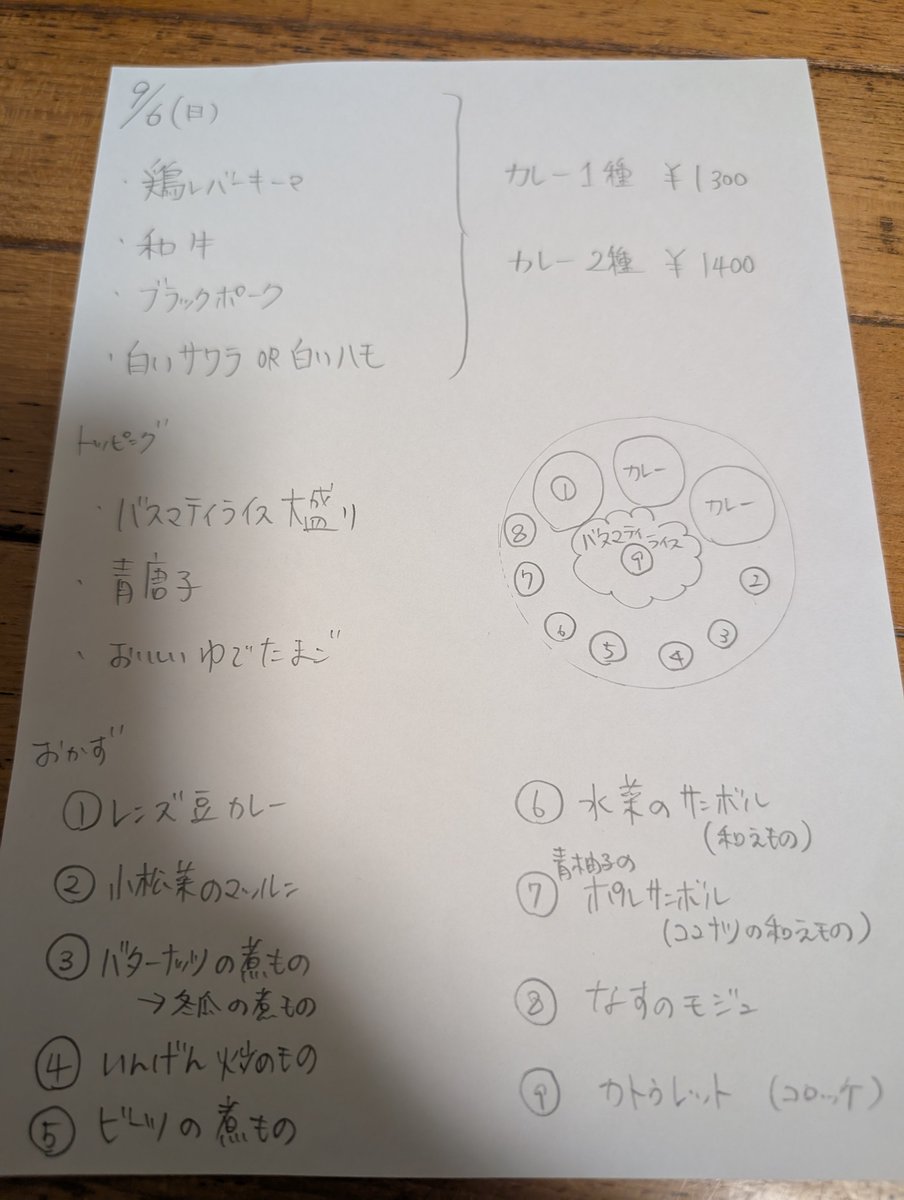 9/6(日)
・鶏レバーキーマ
・和牛
・ブラックポーク
・白いサワラ OR 白いハモ
カレー1種 ¥1300
カレー2種 ¥1400
トッピング
・バスマティライス大盛り
・青唐子
・おいしいゆでたまご
① カレー カレー
バスマティライス
⑨
⑧ ⑦ ⑥ ⑤ ④ ③ ②
おかず
① レンズ豆カレー
② 小松菜のマッルン
③ バターナッツの煮もの
→冬瓜の煮もの
④ いんげん炒めもの
⑤ ビーツの煮もの
⑥ 水菜のサンボル
(和えもの)
青柚子の
⑦ ポルサンボル
(ココナツの和えもの)
⑧ なすのモジュ
⑨ カトゥレット (コロッケ)